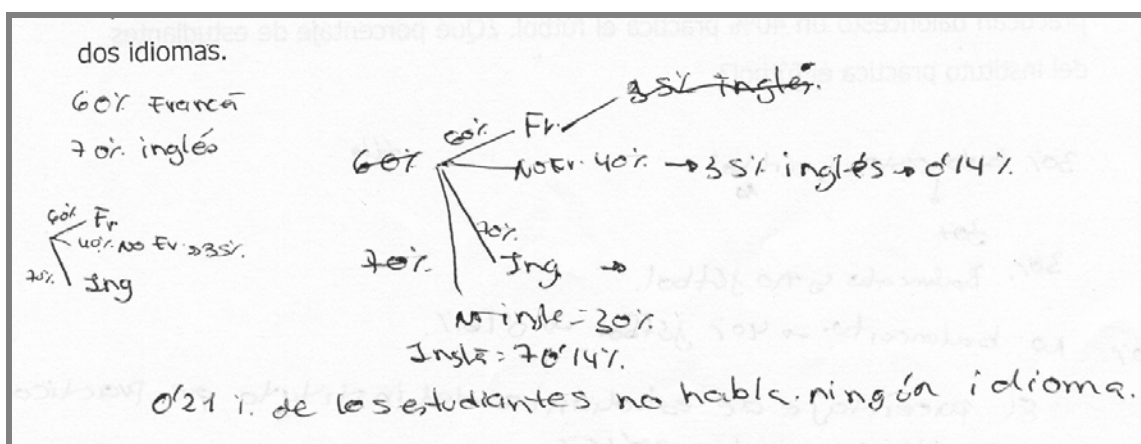 dos idiomas.
60% Francé
70% inglés
60% Fr
40% No Fr → 35%
70% Ing
35% Inglés.
60% Fr.
60% NO Fr. 40% → 35% inglés → 0'14%
70%
70% Ing →
No ingle = 30%
Inglé = 70'14%
0'21 %. de los estudiantes no habla ningún idioma.